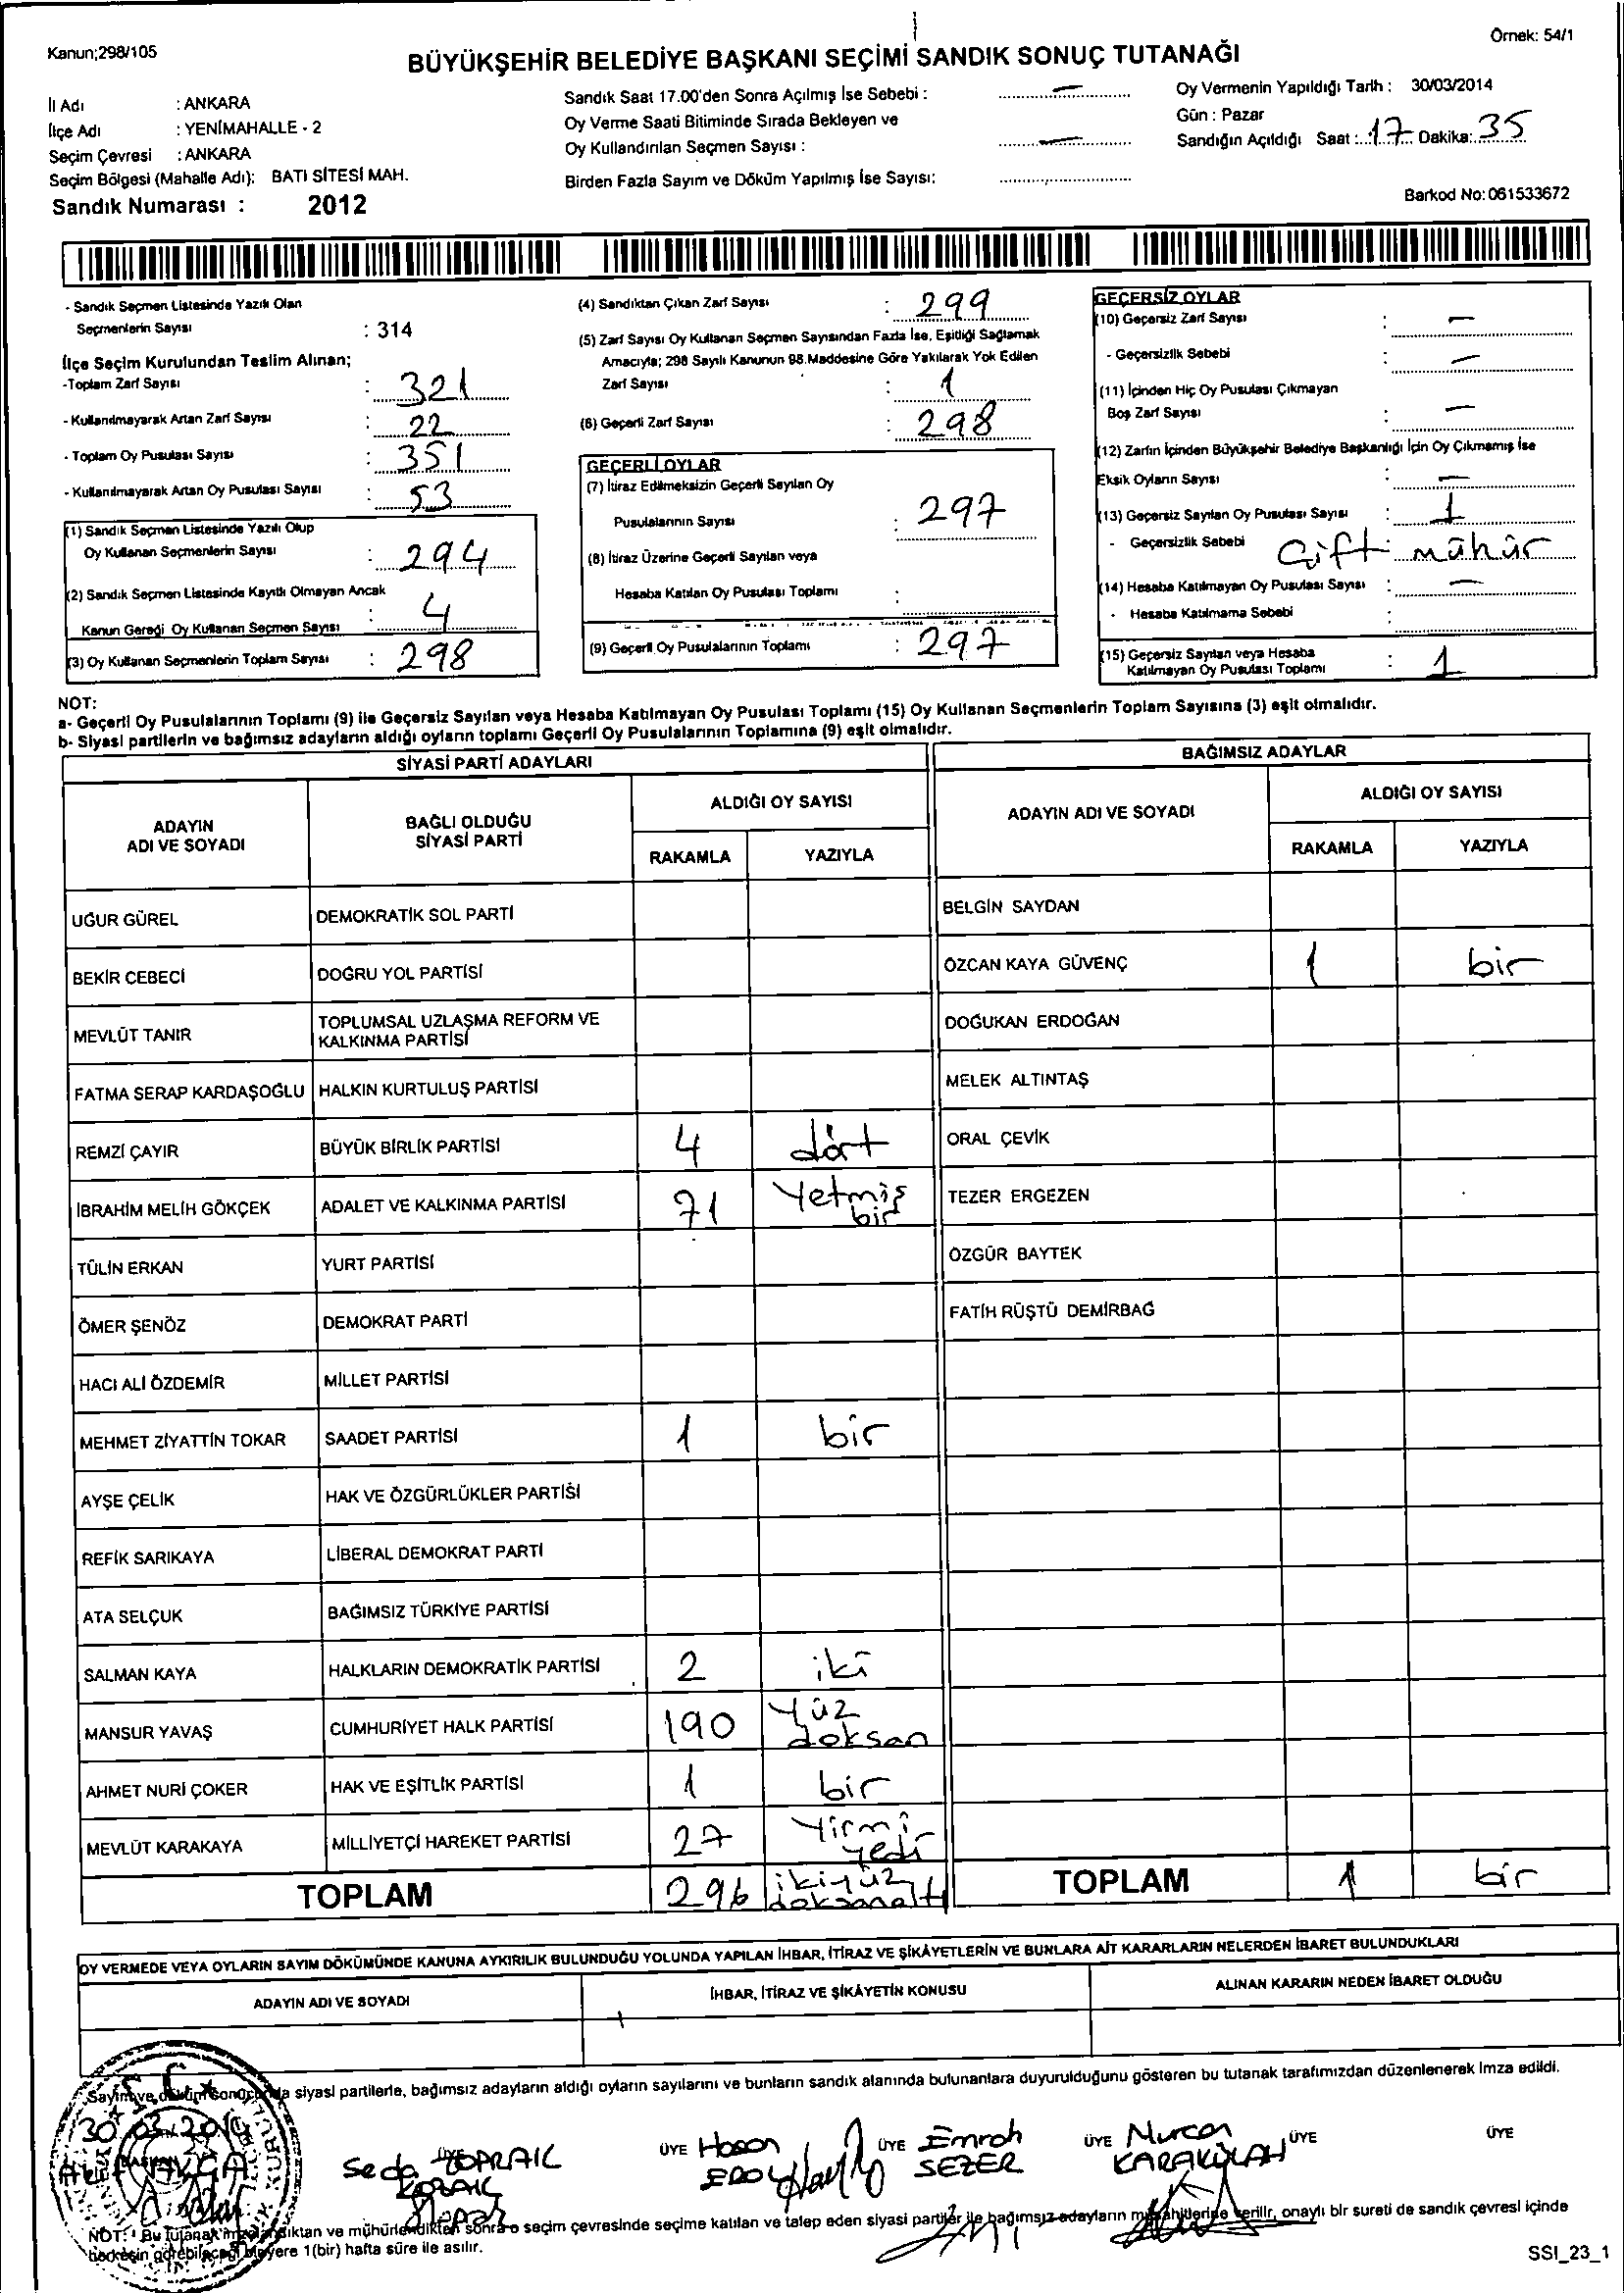 Kanun;298/105
Örnek: 54/1
BÜYÜKŞEHİR BELEDİYE BAŞKANI SEÇİMİ SANDIK SONUÇ TUTANAĞI
İl Adı : ANKARA
İlçe Adı : YENİMAHALLE - 2
Seçim Çevresi : ANKARA
Seçim Bölgesi (Mahalle Adı): BATI SİTESİ MAH.
Sandık Numarası : 2012
Sandık Saat 17.00'den Sonra Açılmış İse Sebebi : —
Oy Verme Saati Bitiminde Sırada Bekleyen ve
Oy Kullandırılan Seçmen Sayısı : —
Birden Fazla Sayım ve Döküm Yapılmış İse Sayısı:
Oy Vermenin Yapıldığı Tarih : 30/03/2014
Gün : Pazar
Sandığın Açıldığı Saat : 17 Dakika: 35
Barkod No: 061533672
- Sandık Seçmen Listesinde Yazılı Olan
Seçmenlerin Sayısı : 314
İlçe Seçim Kurulundan Teslim Alınan;
-Toplam Zarf Sayısı : 321
- Kullanılmayarak Artan Zarf Sayısı : 22
- Toplam Oy Pusulası Sayısı : 351
- Kullanılmayarak Artan Oy Pusulası Sayısı : 53
(1) Sandık Seçmen Listesinde Yazılı Olup
Oy Kullanan Seçmenlerin Sayısı : 294
(2) Sandık Seçmen Listesinde Kayıtlı Olmayan Ancak
Kanun Gereği Oy Kullanan Seçmen Sayısı : 4
(3) Oy Kullanan Seçmenlerin Toplam Sayısı : 298
(4) Sandıktan Çıkan Zarf Sayısı : 299
(5) Zarf Sayısı Oy Kullanan Seçmen Sayısından Fazla İse, Eşitliği Sağlamak
Amacıyla; 298 Sayılı Kanunun 98.Maddesine Göre Yakılarak Yok Edilen
Zarf Sayısı : 1
(6) Geçerli Zarf Sayısı : 298
GEÇERLİ OYLAR
(7) İtiraz Edilmeksizin Geçerli Sayılan Oy
Pusulalarının Sayısı : 297
(8) İtiraz Üzerine Geçerli Sayılan veya
Hesaba Katılan Oy Pusulası Toplamı :
(9) Geçerli Oy Pusulalarının Toplamı : 297
GEÇERSİZ OYLAR
(10) Geçersiz Zarf Sayısı : —
- Geçersizlik Sebebi : —
(11) İçinden Hiç Oy Pusulası Çıkmayan
Boş Zarf Sayısı : —
(12) Zarfın İçinden Büyükşehir Belediye Başkanlığı İçin Oy Çıkmamış İse
Eksik Oyların Sayısı : —
(13) Geçersiz Sayılan Oy Pusulası Sayısı : 1
- Geçersizlik Sebebi : Çift mühür
(14) Hesaba Katılmayan Oy Pusulası Sayısı : —
- Hesaba Katılmama Sebebi :
(15) Geçersiz Sayılan veya Hesaba
Katılmayan Oy Pusulası Toplamı : 1
NOT:
a- Geçerli Oy Pusulalarının Toplamı (9) ile Geçersiz Sayılan veya Hesaba Katılmayan Oy Pusulası Toplamı (15) Oy Kullanan Seçmenlerin Toplam Sayısına (3) eşit olmalıdır.
b- Siyasi partilerin ve bağımsız adayların aldığı oyların toplamı Geçerli Oy Pusulalarının Toplamına (9) eşit olmalıdır.
SİYASİ PARTİ ADAYLARI
BAĞIMSIZ ADAYLAR
ADAYIN
ADI VE SOYADI
BAĞLI OLDUĞU
SİYASİ PARTİ
ALDIĞI OY SAYISI
RAKAMLA YAZIYLA
ADAYIN ADI VE SOYADI
ALDIĞI OY SAYISI
RAKAMLA YAZIYLA
UĞUR GÜREL DEMOKRATİK SOL PARTİ BELGİN SAYDAN
BEKİR CEBECİ DOĞRU YOL PARTİSİ ÖZCAN KAYA GÜVENÇ 1 bir
MEVLÜT TANIR TOPLUMSAL UZLAŞMA REFORM VE
KALKINMA PARTİSİ DOĞUKAN ERDOĞAN
FATMA SERAP KARDAŞOĞLU HALKIN KURTULUŞ PARTİSİ MELEK ALTINTAŞ
REMZİ ÇAYIR BÜYÜK BİRLİK PARTİSİ 4 dört ORAL ÇEVİK
İBRAHİM MELİH GÖKÇEK ADALET VE KALKINMA PARTİSİ 71 Yetmiş
bir TEZER ERGEZEN
TÜLİN ERKAN YURT PARTİSİ ÖZGÜR BAYTEK
ÖMER ŞENÖZ DEMOKRAT PARTİ FATİH RÜŞTÜ DEMİRBAĞ
HACI ALİ ÖZDEMİR MİLLET PARTİSİ
MEHMET ZİYATTİN TOKAR SAADET PARTİSİ 1 bir
AYŞE ÇELİK HAK VE ÖZGÜRLÜKLER PARTİSİ
REFİK SARIKAYA LİBERAL DEMOKRAT PARTİ
ATA SELÇUK BAĞIMSIZ TÜRKİYE PARTİSİ
SALMAN KAYA HALKLARIN DEMOKRATİK PARTİSİ 2 iki
MANSUR YAVAŞ CUMHURİYET HALK PARTİSİ 190 Yüz
doksan
AHMET NURİ ÇOKER HAK VE EŞİTLİK PARTİSİ 1 bir
MEVLÜT KARAKAYA MİLLİYETÇİ HAREKET PARTİSİ 27 Yirmi
yedi
TOPLAM 296 ikiyüz
doksanaltı TOPLAM 1 bir
OY VERMEDE VEYA OYLARIN SAYIM DÖKÜMÜNDE KANUNA AYKIRILIK BULUNDUĞU YOLUNDA YAPILAN İHBAR, İTİRAZ VE ŞİKÂYETLERİN VE BUNLARA AİT KARARLARIN NELERDEN İBARET BULUNDUKLARI
ADAYIN ADI VE SOYADI İHBAR, İTİRAZ VE ŞİKÂYETİN KONUSU ALINAN KARARIN NEDEN İBARET OLDUĞU
Sayım ve döküm sonucunda siyasi partilerle, bağımsız adayların aldığı oyların sayılarını ve bunların sandık alanında bulunanlara duyurulduğunu gösteren bu tutanak tarafımızdan düzenlenerek imza edildi.
30.03.2014
Seda TOPRAK
ÜYE Hasan
ÜYE Emrah
SEZER
ÜYE Nurcan
KARAKÜLAH
ÜYE
ÜYE
NOT: Bu tutanak imzalandıktan ve mühürlendikten sonra o seçim çevresinde seçime katılan ve talep eden siyasi partiler ile bağımsız adayların müşahitlerine verilir, onaylı bir sureti de sandık çevresi içinde
herkesin görebileceği bir yere 1(bir) hafta süre ile asılır.
SSI_23_1